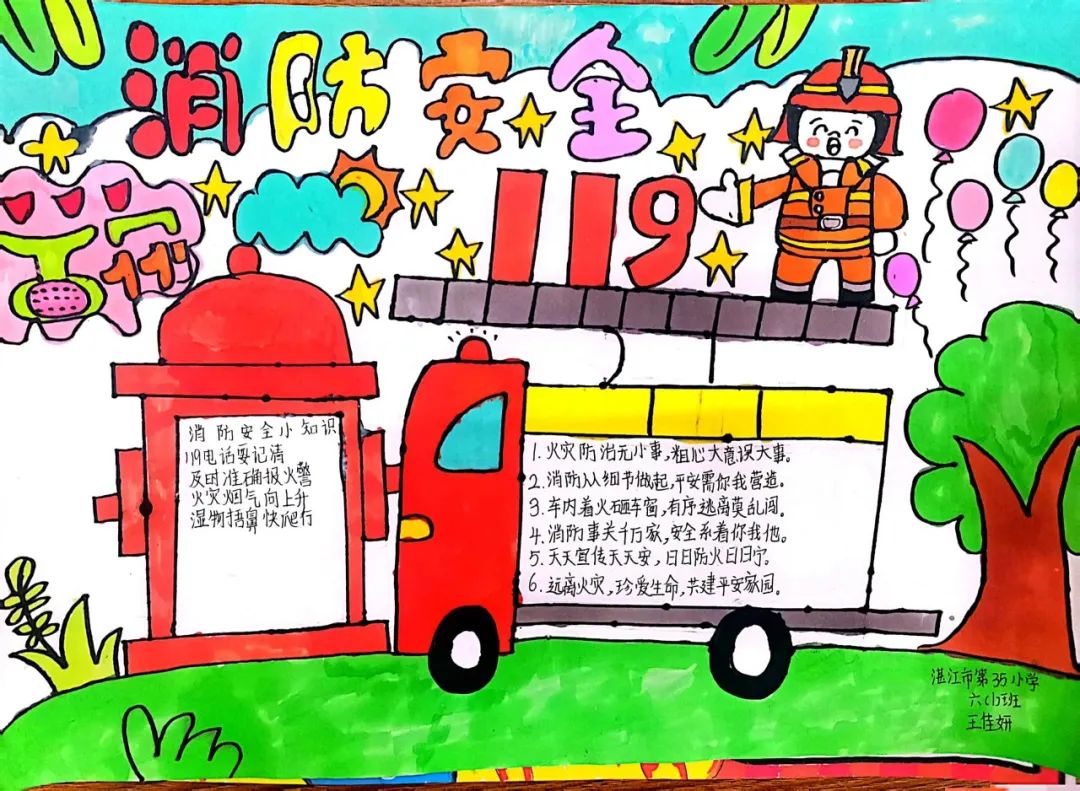 消防安全
119
消防安全小知识
119电话要记清
及时准确报火警
火灾烟气向上升
湿物捂鼻快爬行
1. 火灾防治无小事,粗心大意误大事。
2. 消防从细节做起,平安需你我营造。
3. 车内着火砸车窗,有序逃离莫乱闯。
4. 消防事关千万家,安全系着你我他。
5. 天天宣传天天安,日日防火日日宁。
6. 远离火灾,珍爱生命,共建平安家园。
湛江市第35小学
六(1)班
王佳妍